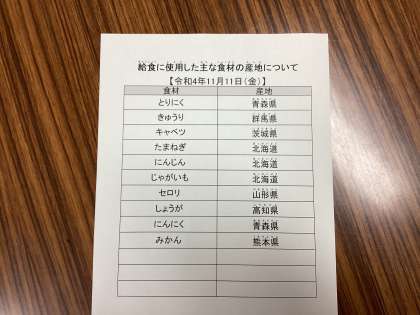 給食に使用した主な食材の産地について
【令和4年11月11日(金)】
食材 産地
とりにく 青森県
きゅうり 群馬県
キャベツ 茨城県
たまねぎ 北海道
にんじん 北海道
じゃがいも 北海道
セロリ 山形県
しょうが 高知県
にんにく 青森県
みかん 熊本県